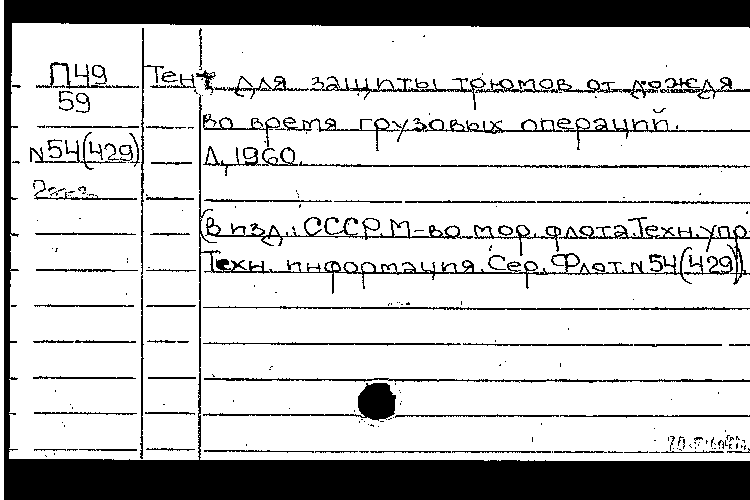 П49 Тент для защиты трюмов от дождя
59
во время грузовых операций.
N54(429) Л, 1960.
(В изд.: СССР. М-во мор. флота. Техн. упр.
Техн. информация. Сер. Флот. N54(429)).